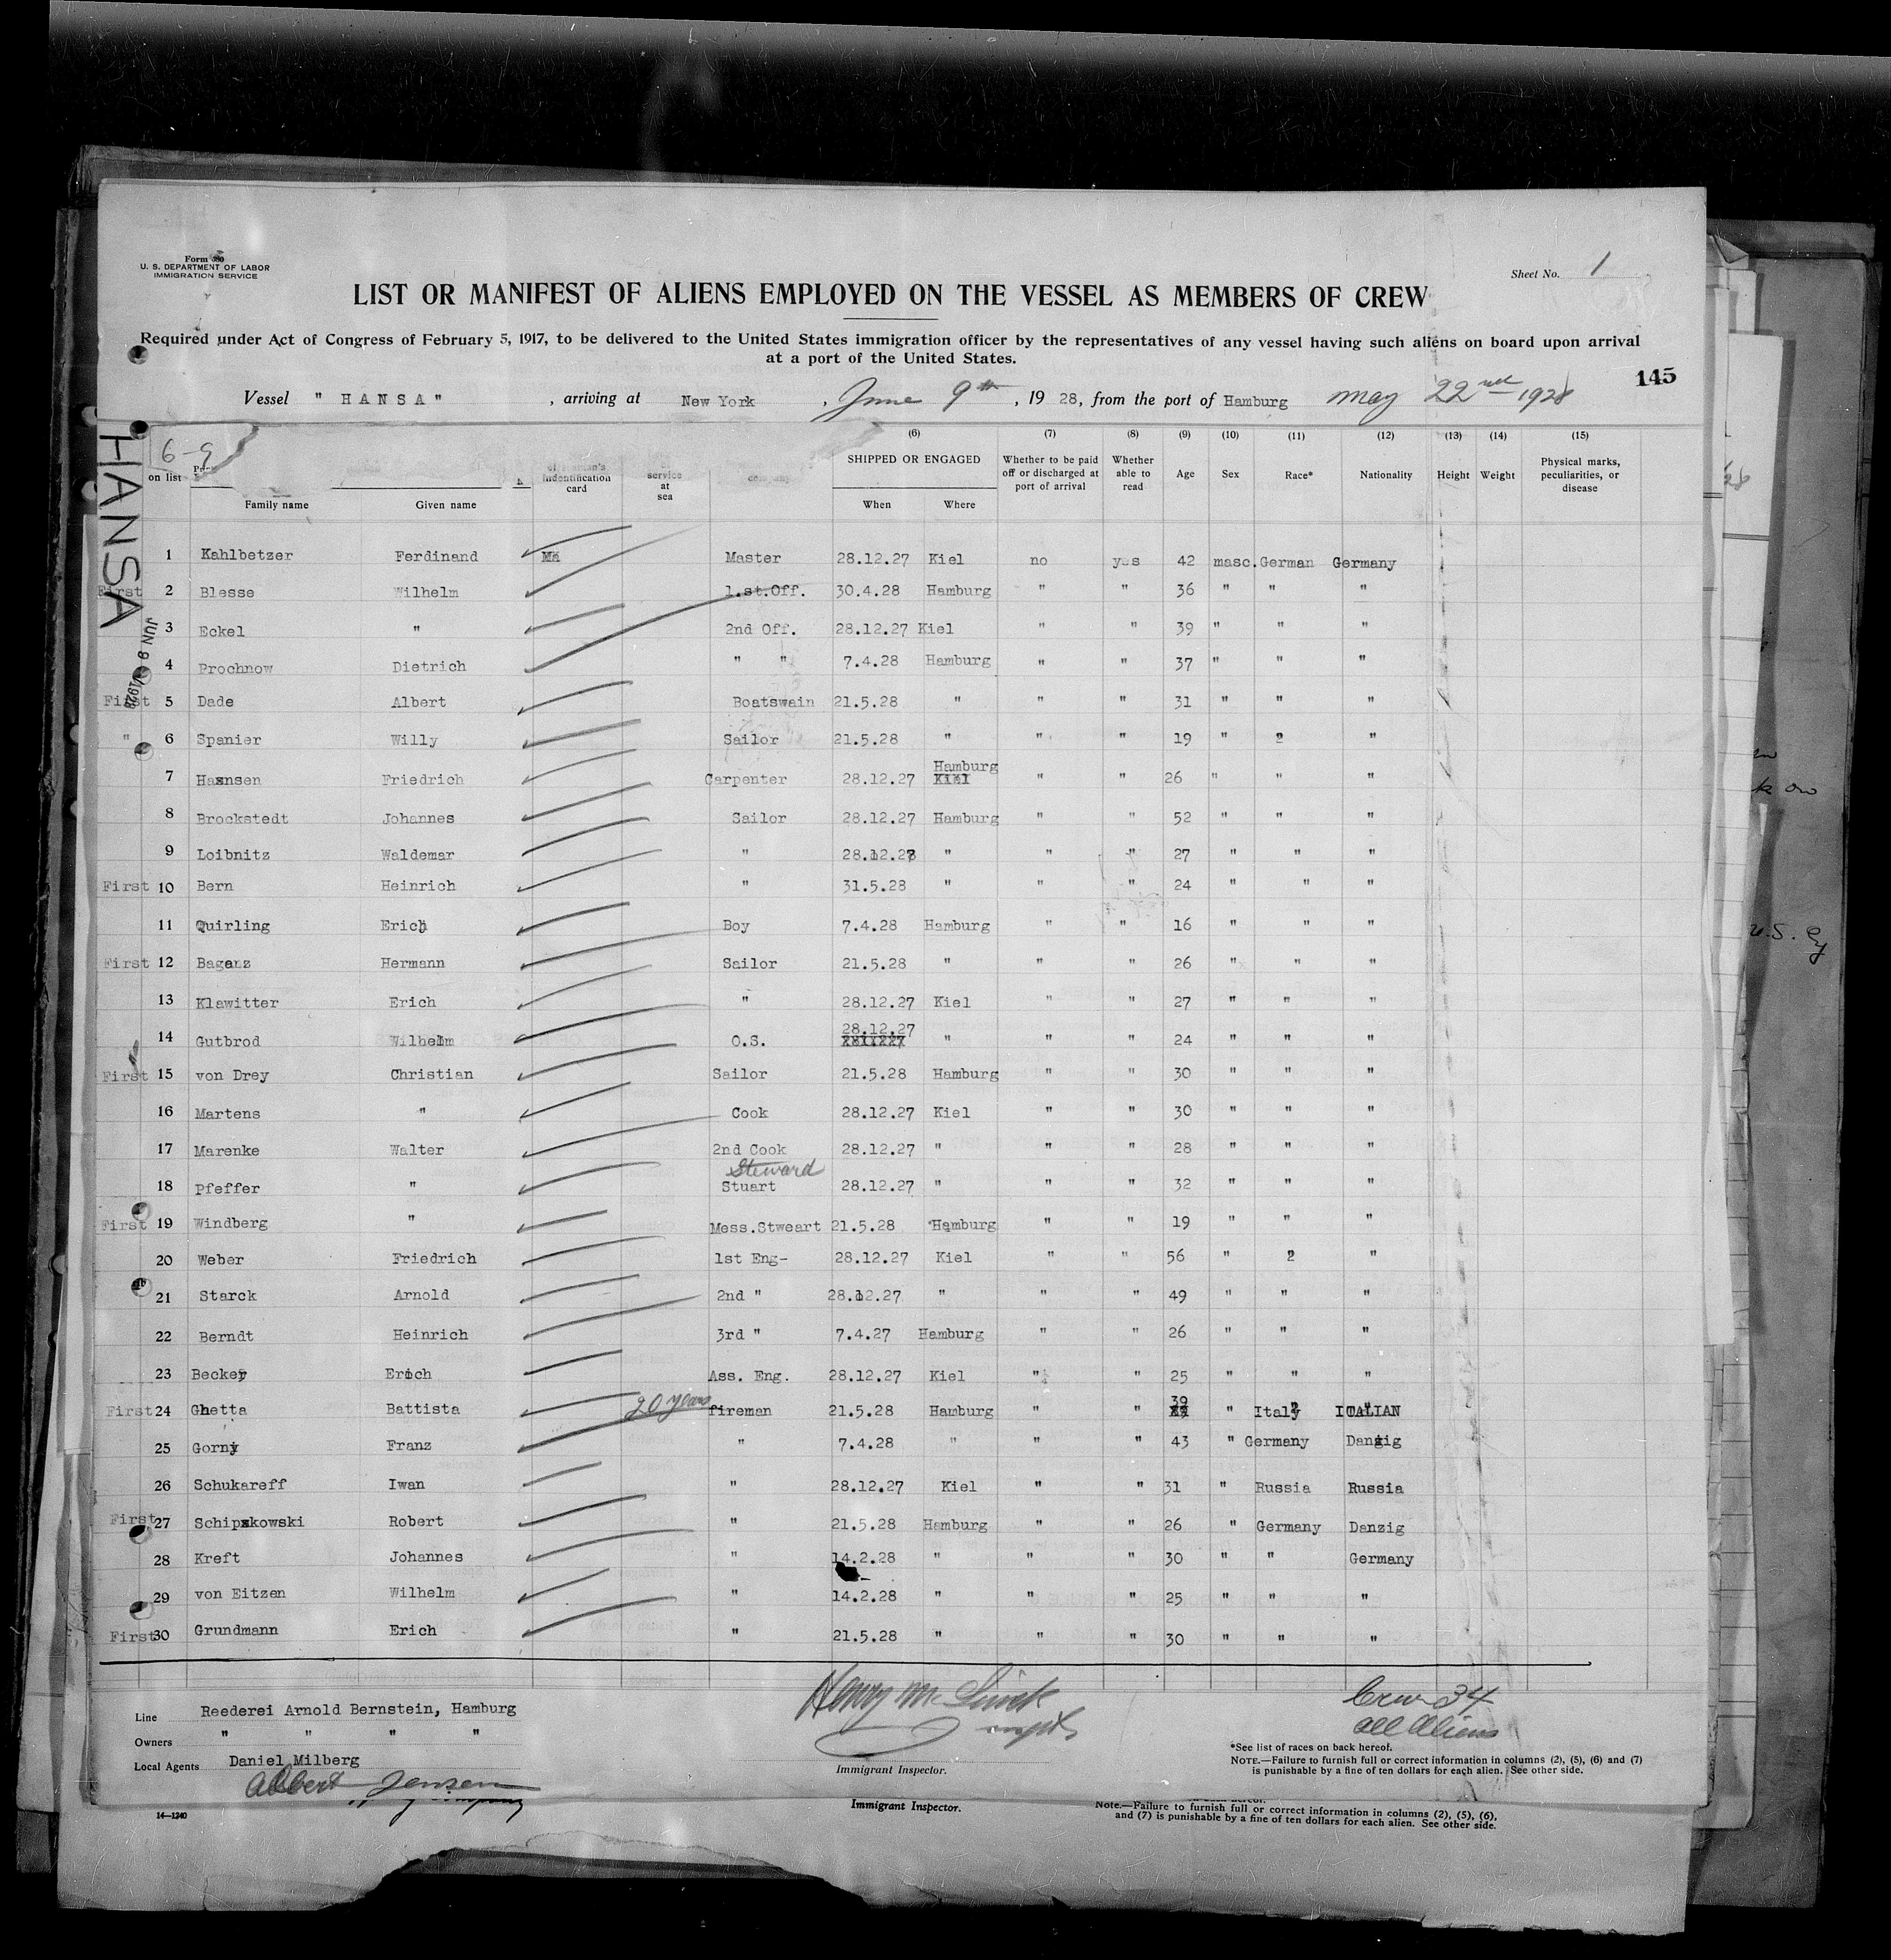 Form 680
U. S. DEPARTMENT OF LABOR
IMMIGRATION SERVICE
Sheet No. 1
LIST OR MANIFEST OF ALIENS EMPLOYED ON THE VESSEL AS MEMBERS OF CREW
Required under Act of Congress of February 5, 1917, to be delivered to the United States immigration officer by the representatives of any vessel having such aliens on board upon arrival
at a port of the United States.
145
Vessel " HANSA" , arriving at New York , June 9th , 19 28, from the port of Hamburg may 22nd 1928
6-9
HANSA
JUN 9 1928
(6) (7) (8) (9) (10) (11) (12) (13) (14) (15)
on list Family name Given name Indentification card service at sea company SHIPPED OR ENGAGED When Where Whether to be paid off or discharged at port of arrival Whether able to read Age Sex Race* Nationality Height Weight Physical marks, peculiarities, or disease
1 Kahlbetzer Ferdinand Master 28.12.27 Kiel no yes 42 masc. German Germany
First 2 Blesse Wilhelm 1.st.Off. 30.4.28 Hamburg " " 36 " " "
3 Eckel " 2nd Off. 28.12.27 Kiel " " 39 " " "
4 Prochnow Dietrich " " 7.4.28 Hamburg " " 37 " " "
First 5 Dade Albert Boatswain 21.5.28 " " " 31 " " "
" 6 Spanier Willy Sailor 21.5.28 " " " 19 " " "
7 Hansen Friedrich Carpenter 28.12.27 Hamburg Kiel " " 26 " " "
8 Brockstedt Johannes Sailor 28.12.27 Hamburg " " 52 " " "
9 Loibnitz Waldemar " 28.12.27 " " " 27 " " "
First 10 Bern Heinrich " 31.5.28 " " " 24 " " "
11 Quirling Erich Boy 7.4.28 Hamburg " " 16 " " "
First 12 Baganz Hermann Sailor 21.5.28 " " " 26 " " "
13 Klawitter Erich " 28.12.27 Kiel " " 27 " " "
14 Gutbrod Wilhelm O.S. 28.12.27 " " " 24 " " "
First 15 von Drey Christian Sailor 21.5.28 Hamburg " " 30 " " "
16 Martens " Cook 28.12.27 Kiel " " 30 " " "
17 Marenke Walter 2nd Cook 28.12.27 " " " 28 " " "
18 Pfeffer " Steward Stuart 28.12.27 " " " 32 " " "
First 19 Windberg " Mess.Stweart 21.5.28 Hamburg " " 19 " " "
20 Weber Friedrich 1st Eng- 28.12.27 Kiel " " 56 " " "
21 Starck Arnold 2nd " 28.12.27 " " " 49 " " "
22 Berndt Heinrich 3rd " 7.4.27 Hamburg " " 26 " " "
23 Becker Erich Ass. Eng. 28.12.27 Kiel " " 25 " " "
First 24 Ghetta Battista 20 years fireman 21.5.28 Hamburg " " 39 " Italy ITALIAN
25 Gorny Franz " 7.4.28 " " " 43 " Germany Danzig
26 Schukareff Iwan " 28.12.27 Kiel " " 31 " Russia Russia
First 27 Schipkowski Robert " 21.5.28 Hamburg " " 26 " Germany Danzig
28 Kreft Johannes " 14.2.28 " " " 30 " " Germany
29 von Eitzen Wilhelm " 14.2.28 " " " 25 " " "
First 30 Grundmann Erich " 21.5.28 " " " 30 " " "
Line Reederei Arnold Bernstein, Hamburg
Owners " " " "
Local Agents Daniel Milberg
Albert Jensen
Immigrant Inspector.
Crew 34
all aliens
*See list of races on back hereof.
NOTE.—Failure to furnish full or correct information in columns (2), (5), (6) and (7)
is punishable by a fine of ten dollars for each alien. See other side.
14—1240
Immigrant Inspector.
Note.—Failure to furnish full or correct information in columns (2), (5), (6),
and (7) is punishable by a fine of ten dollars for each alien. See other side.